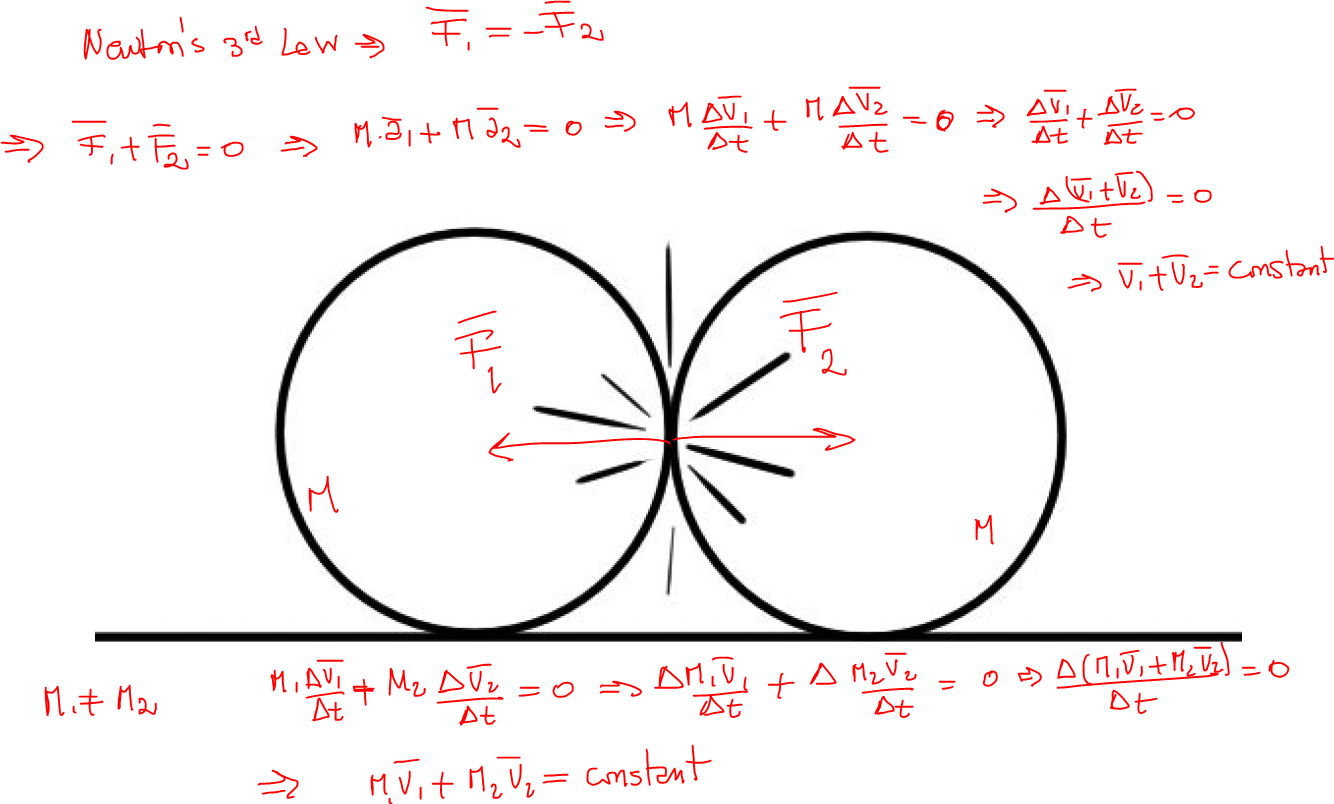 Newton's 3rd Law ⇒ F̅₁ = -F̅₂
⇒ F̅₁ + F̅₂ = 0 ⇒ M·a̅₁ + M a̅₂ = 0 ⇒ M ΔV̅₁/Δt + M ΔV̅₂/Δt = 0 ⇒ ΔV̅₁/Δt + ΔV̅₂/Δt = 0
⇒ Δ(V̅₁ + V̅₂)/Δt = 0
⇒ V̅₁ + V̅₂ = constant
F̅₁
F̅₂
M
M
M₁ ≠ M₂
M₁ ΔV̅₁/Δt + M₂ ΔV̅₂/Δt = 0 ⇒ ΔM₁V̅₁/Δt + Δ M₂V̅₂/Δt = 0 ⇒ Δ(M₁V̅₁ + M₂V̅₂)/Δt = 0
⇒ M₁V̅₁ + M₂V̅₂ = constant